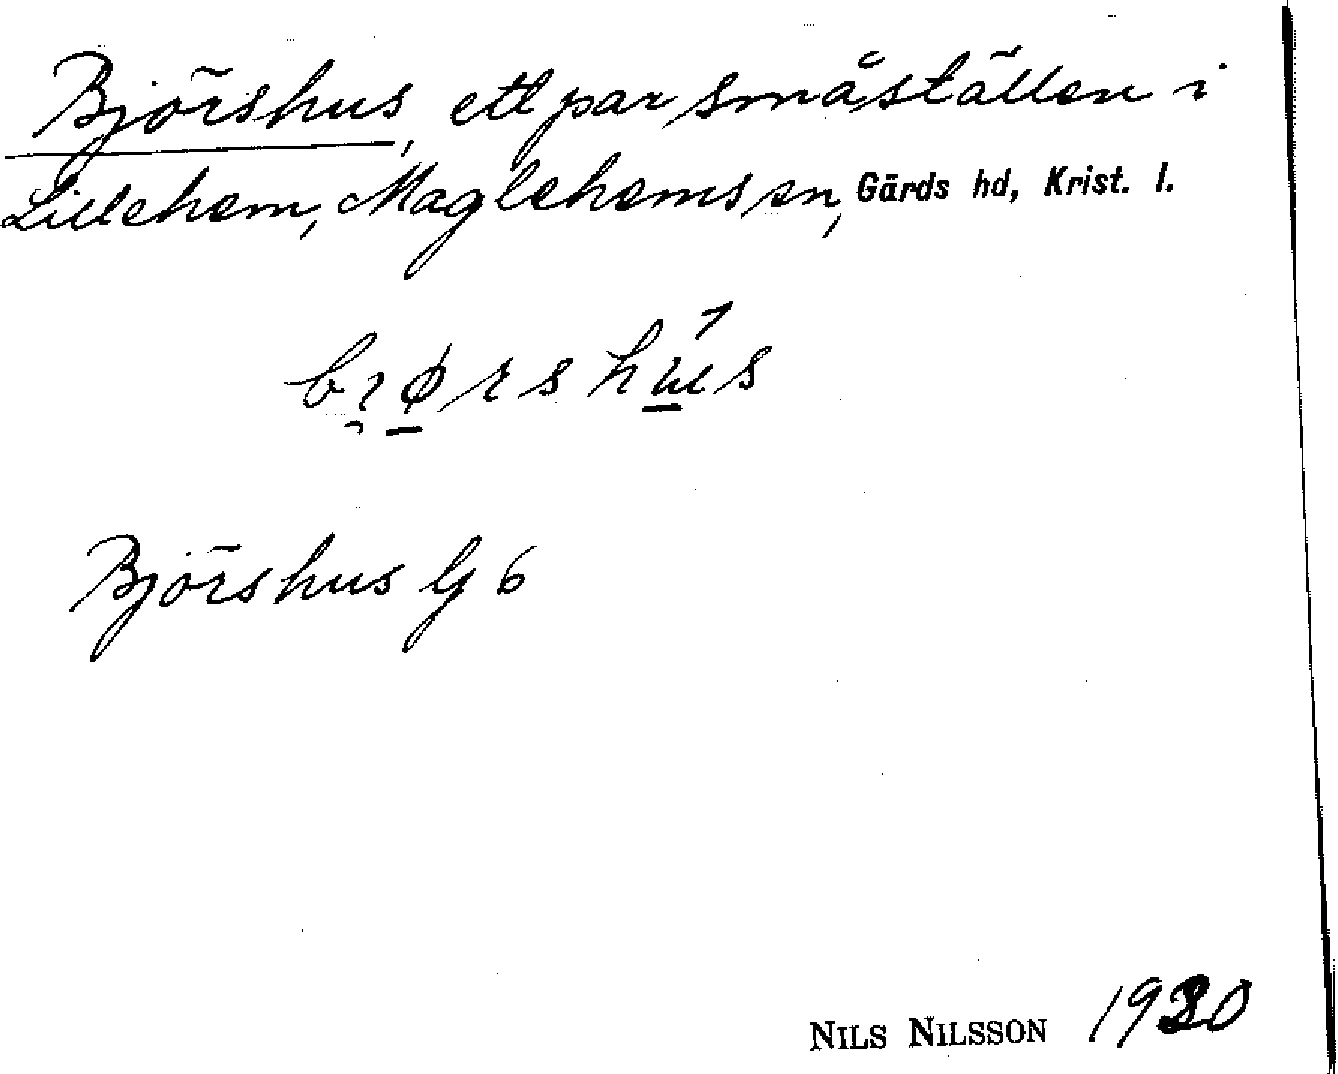 Björshus, ett par småställen i
Lillehem, Maglehems sn, Gärds hd, Krist. l.
bi̯ø̱rshu̱s
Björshus G 6
NILS NILSSON 1930